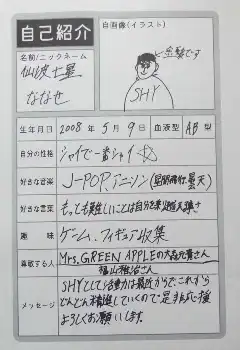 自己紹介
自画像(イラスト)
名前/ニックネーム
仙波七星
ななせ
←金髪です
SHY
生年月日 2008年5月9日 血液型 AB型
自分の性格 シャイで一番シャイ
好きな音楽 J-POP、アニソン(星間飛行、曇天)
好きな言葉 もっとも難しいことは自分を
趣味 ゲーム、フィギュア収集
尊敬する人 Mrs.GREEN APPLEの大森元貴さん
福山雅治さん
メッセージ SHYとしての活動は最近からで、これから
どんどん精進していくので是非応援
よろしくお願いします